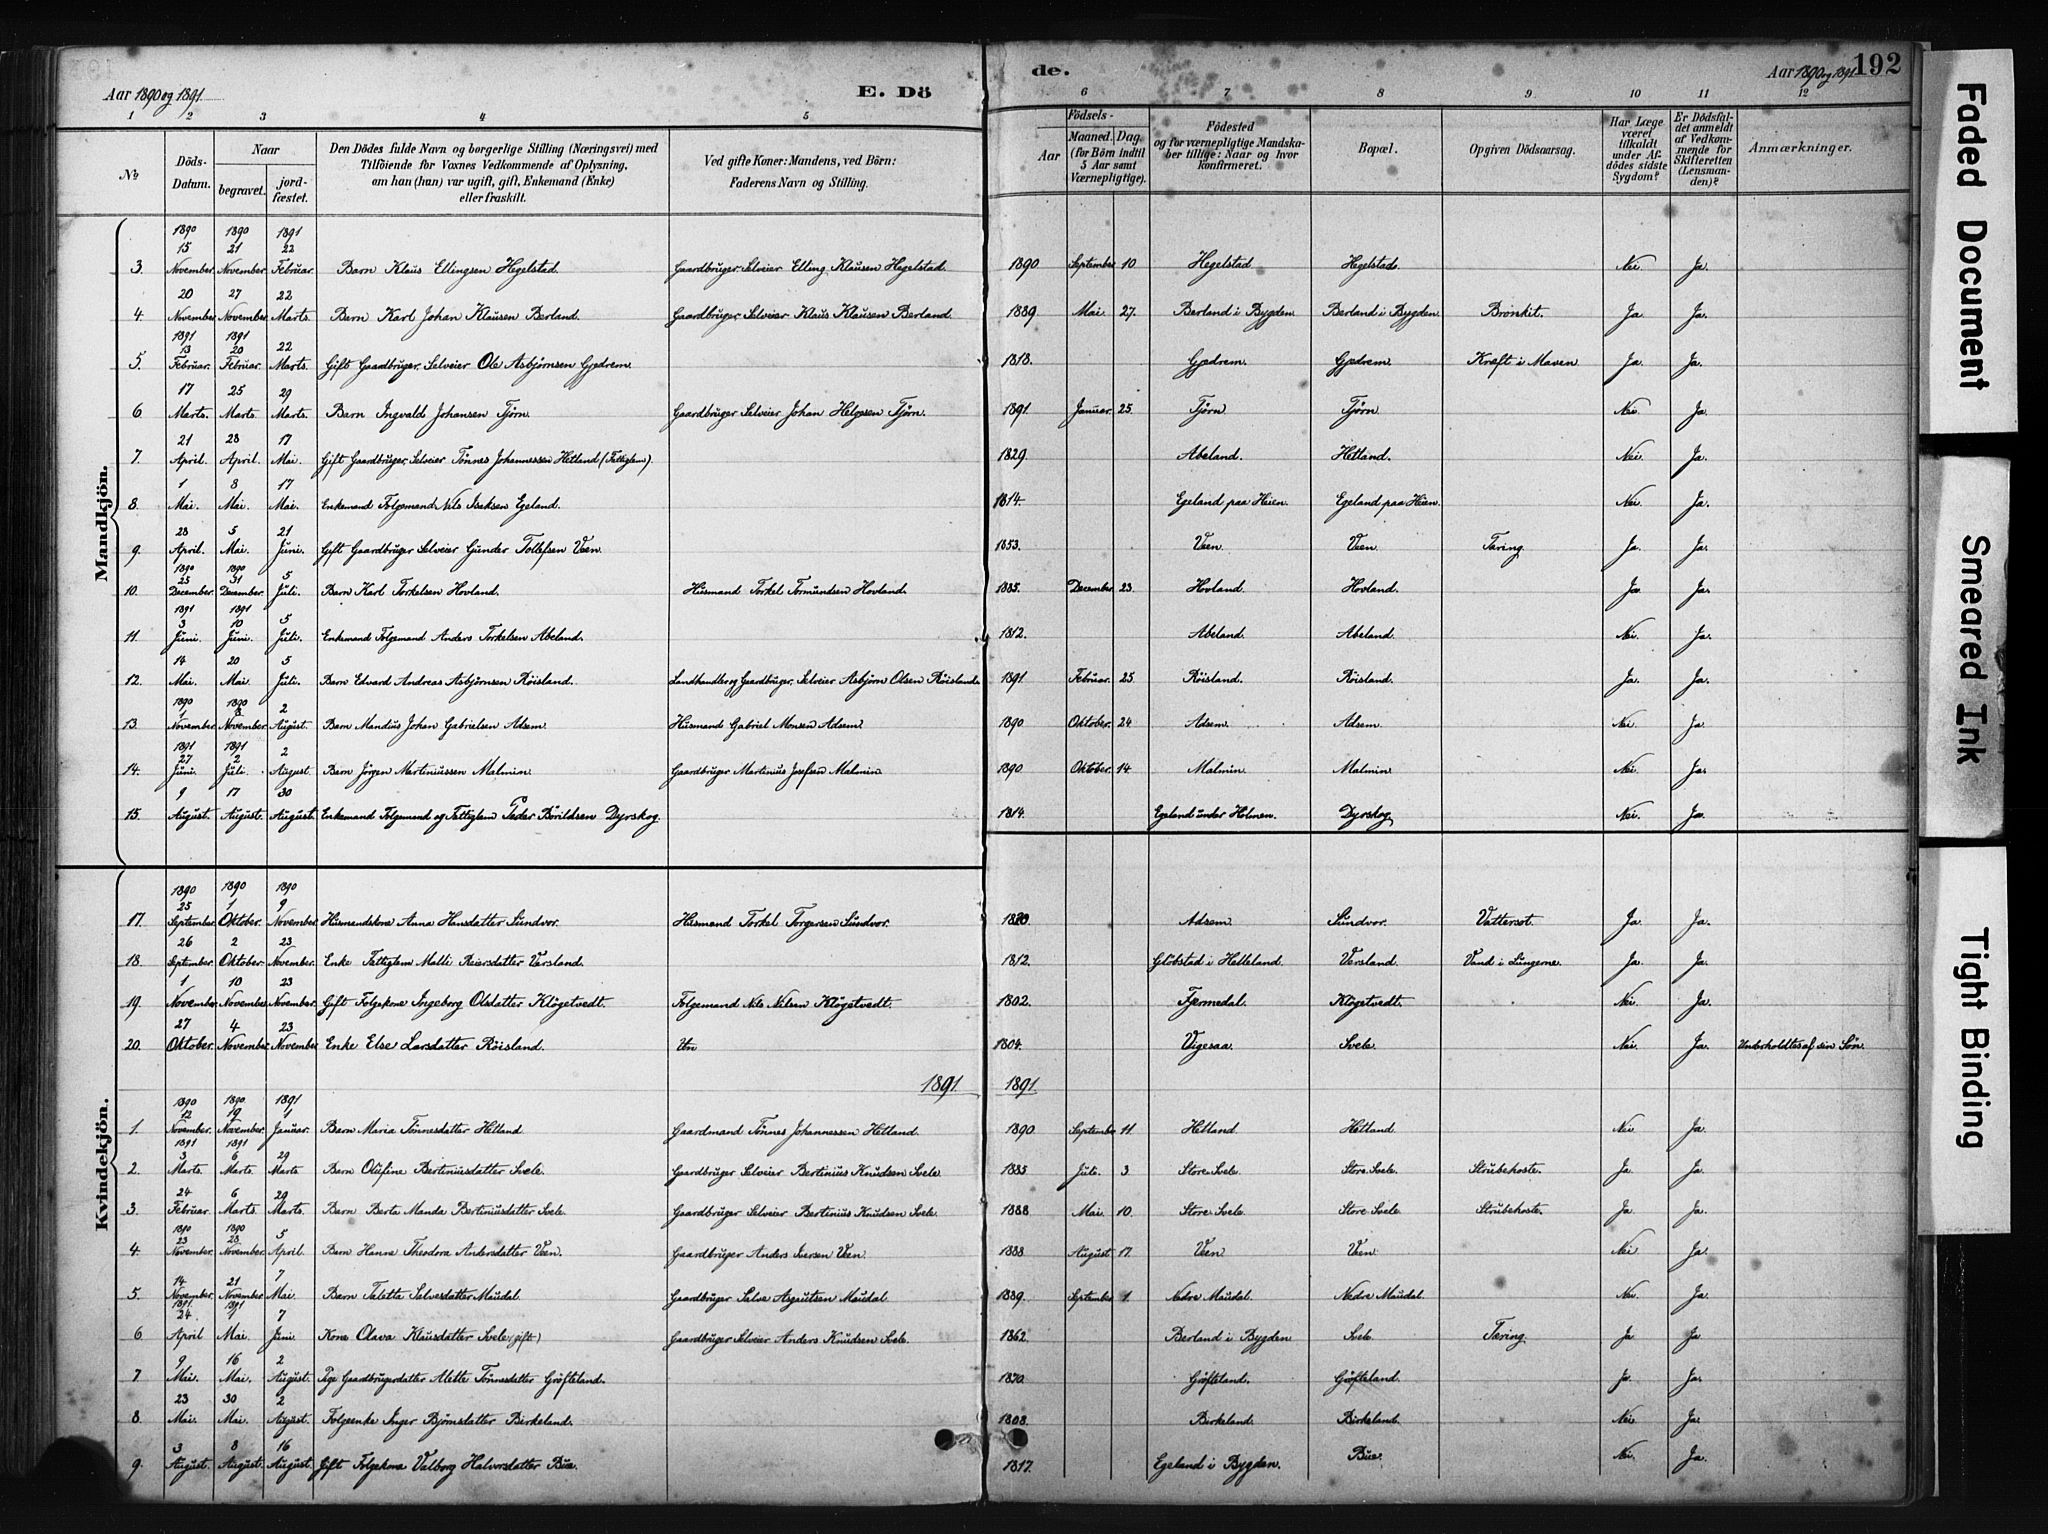 Aar 1890 og 1891
E. Dö
de.
Aar 1890 og 1891
192
1 2 3 4 5 6 7 8 9 10 11 12
No
Döds-Datum.
Naar
begravet.
jordfæstet.
Den Dödes fulde Navn og borgerlige Stilling (Næringsvei) med
Tilföiende for Voxnes Vedkommende af Oplysning,
om han (hun) var ugift, gift, Enkemand (Enke)
eller fraskilt.
Ved gifte Koner: Mandens, ved Börn:
Faderens Navn og Stilling.
Födsels-
Aar
Maaned. Dag.
(for Börn indtil
5 Aar samt
Værnepligtige).
Födested
og for værnepligtige Mandska-
ber tillige: Naar og hvor
konfirmeret.
Bopæl.
Opgiven Dödsaarsag.
Har Læge
været
tilkaldt
under Af-
dödes sidste
Sygdom?
Er Dödsfal-
det anmeldt
af Vedkom-
mende for
Skifteretten
(Lensman-
den)?
Anmærkninger.
Mandkjön.
1890 1890 1891
15 21 22
3. November. November. Februar. Barn Klaus Ellingsen Hegelstad. Gaardbruger, Selveier Elling Klausen Hegelstad. 1890 September 10 Hegelstad Hegelstad. Nei. Ja.
20 27 22
4. November. November. Marts. Barn Karl Johan Klausen Berland. Gaardbruger, Selveier Klaus Klausen Berland 1889 Mai 27. Berland i Bygden Berland i Bygden. Bronkit. Ja Ja.
1891 1891
13 20 22
5. Februar. Februar. Marts. Gift Gaardbruger, Selveier Ole Asbjørnsen Gjedrem. 1818. Gjedrem. Gjedrem Kræft i Maven Ja Ja.
17 25 29
6 Marts. Marts. Marts. Barn Ingvald Johansen Tjörn. Gaardbruger Selveier Johan Helgesen Tjörn. 1891. Januar. 25. Tjörn Tjörn. Nei Ja
21 28 17
7. April. April. Mai. Gift Gaardbruger, Selveier Tönnes Johannessen Hetland (Fattiglem). 1829 Abeland. Hetland. Nei Ja.
1 8 17
8. Mai. Mai. Mai. Enkemand Folgemand Nils Iseksen Egeland. 1814. Egeland paa Heien. Egeland paa Heien. Nei Ja.
28 5 21
9. April. Mai. Juni. Gift Gaardbruger Selveier Gunder Tollefsen Veen. 1853. Veen. Veen Tæring. Ja. Ja.
1890 1890
25 31 5
10. December. December. Juli. Barn Karl Torkelsen Hovland. Husmand Torkel Tormundsen Hovland. 1885. December. 23. Hovland. Hovland. Ja. Ja.
1891 1891
3 10 5
11. Juni. Juni. Juli. Enkemand Folgemand Anders Torkelsen Abeland. 1812. Abeland. Abeland. Nei. Ja.
14 20 5
12. Mai. Mai. Juli. Barn Edvard Andreas Asbjörnsen Röisland. Landhandler og Gaardbruger, Selveier Asbjörn Olsen Röisland. 1891 Februar. 25 Röisland. Röisland. Ja. Ja.
1890 1890
1 8 2
13. November. November. August. Barn Mandius Johan Gabrielsen Adsem. Husmand Gabriel Monsen Adsem. 1890 Oktober. 24 Adsem. Adsem. Nei Ja
1891 1891
27 2 2
14. Juni. Juli. August. Barn Jörgen Martiniussen Malmin. Gaardbruger Martinius Josefsen Malmin. 1890 Oktober. 14 Malmin. Malmin. Nei. Ja.
9 17 30
15. August. August. August. Enkemand Folgemand og Fattiglem Peder Börildsen Dyrskog. 1814. Egeland under Holmen. Dyrskog Nei. Ja.
Kvindekjön.
1890 1890 1890
25 1 9
17. September. Oktober. November. Husmandskone Anna Hansdatter Sundvor. Husmand Torkel Torgersen Sundvor. Adsem. Sundvor. Vattersot. Ja Ja.
26 2 23
18. September. Oktober. November. Enke Fattiglem Malli Reiersdatter Versland. 1812. Glöbstad i Helleland. Versland. Vand i Lungerne. Ja. Ja.
1 10 23
19. November. November. November. Gift Folgekone Ingeborg Olsdatter Klögetvedt. Folgemand Nils Nilsen Klögetvedt. 1802. Fjermedal. Klögetvedt. Nei Ja.
27 4 23
20. Oktober. November. November. Enke Else Larsdatter Röisland. 1804. Vigesaa. Svele. Nei. Ja. Underholdtes af sin Sön.
1891 1891
1890 1890 1891
12 19 1
1. November. November. Januar. Barn Maria Tönnesdatter Hetland. Gaardmand Tönnes Johannessen Hetland. 1890 September 11. Hetland. Hetland. Nei Ja.
1891 1891
3 6 29
2. Marts. Marts. Marts. Barn Olufine Bertiniusdatter Svele. Gaardbruger Selveier Bertinius Knudsen Svele. 1885 Juli. 3 Store Svele. Store Svele. Strubehoste. Ja. Ja.
24 6 29
3. Februar. Marts. Marts. Barn Berta Manda Bertiniusdatter Svele. Gaardbruger Selveier Bertinius Knudsen Svele. 1888 Mai. 10. Store Svele. Store Svele. Strubehoste. Ja Ja.
1890 1890
23 28 5
4. November. November. April. Barn Hanne Theodora Andersdatter Veen. Gaardbruger Anders Iversen Veen. 1888 August 17. Veen Veen Nei Ja.
14 21 7
5. November. November. Mai. Barn Taletta Salvesdatter Maudal. Gaardbruger Salve Asgautsen Maudal. 1889. September 1. Nedre Maudal. Nedre Maudal Nei. Ja
1891 1891
24 9 7
6 April Mai. Juni Kone Olava Klausdatter Svele (gift) Gaardbruger Selveier Anders Knudsen Svele. 1862. Berland i Bygden Svele. Tæring. Ja Ja
9 16 2
7 Mai. Mai. August. Pige Gaardbrugerdatter Alette Tönnesdatter Gröfteland. 1870. Gröfteland. Gröfteland. Ja. Ja.
23 30 2
8 Mai. Mai. August. Folgeenke Inger Björnsdatter Birkeland. 1808. Birkeland. Birkeland. Nei. Ja.
3 8 16
9. August. August. August. Gift Folgekone Valborg Halvorsdatter Bue. 1817. Egeland i Bygden. Bue. Nei. Ja.
Faded Document
Smeared Ink
Tight Binding